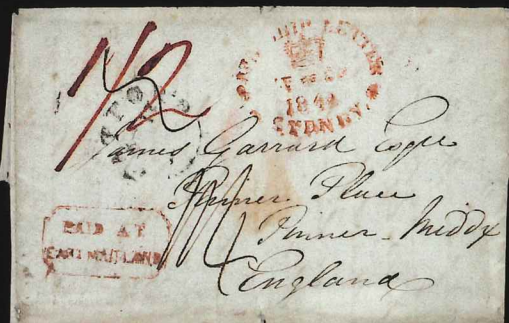 1/2
PAID SHIP LETTER
1844
SYDNEY
James Garrard Esqre
Pinner Place
Pinner Middx
England
PAID AT
EAST MAITLAND